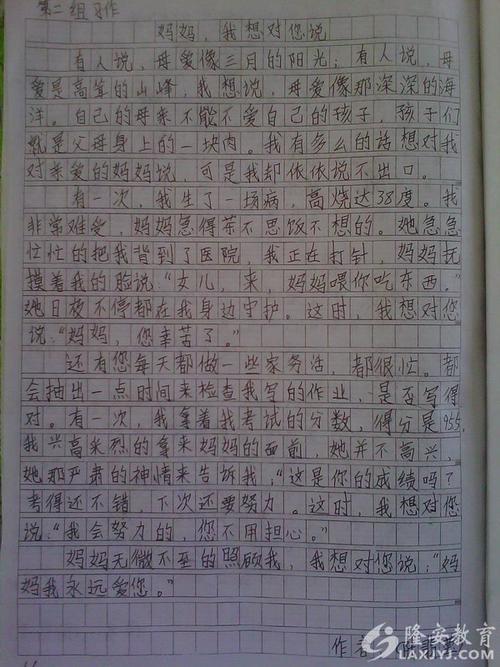 第二组习作
妈妈，我想对您说
有人说，母爱像三月的阳光；有人说，母
爱是高耸的山峰，我想说，母爱像那深深的海
洋。自己的母亲不能不爱自己的孩子，孩子们
就是父母身上的一块肉。我有多么的话想对我
对亲爱的妈妈说，可是我却依依说不出口。
有一次，我生了一场病，高烧达38度。我
非常难受，妈妈急得茶不思饭不想的。她急急
忙忙的把我背到了医院，我正在打针，妈妈抚
摸着我的脸说："女儿，来，妈妈喂你吃东西。"
她日夜不停都在我身边守护。这时，我想对您
说："妈妈，您幸苦了。"
还有您每天都做一些家务活，都很忙。都
会抽出一点时间来检查我写的作业，是否写得
对。有一次，我拿着我考试的分数，得分是95.5，
我兴高采烈的拿来妈妈的面前，她并不高兴，
她那严肃的神情来告诉我："这是你的成绩吗？
考得还不错，下次还要努力。这时，我想对您
说："我会努力的，您不用担心。"
妈妈无微不至的照顾我，我想对您说："妈
妈我永远爱您。"
作者
隆安教育
LAXJYJ.COM